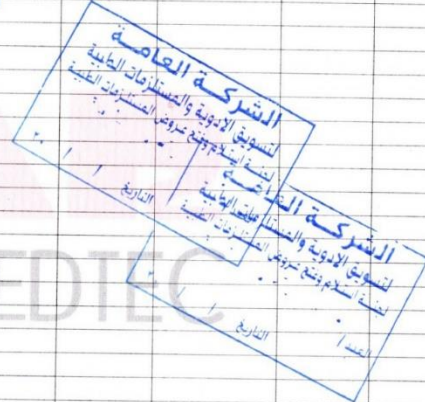 الشركة العامة
لتسويق الادوية والمستلزمات الطبية
لجنة استلام وفتح عروض المستلزمات الطبية
التاريخ / / ٢٠
الشركة العامة
لتسويق الادوية والمستلزمات الطبية
لجنة استلام وفتح عروض المستلزمات الطبية
العدد /
التاريخ / / ٢
EDTEC